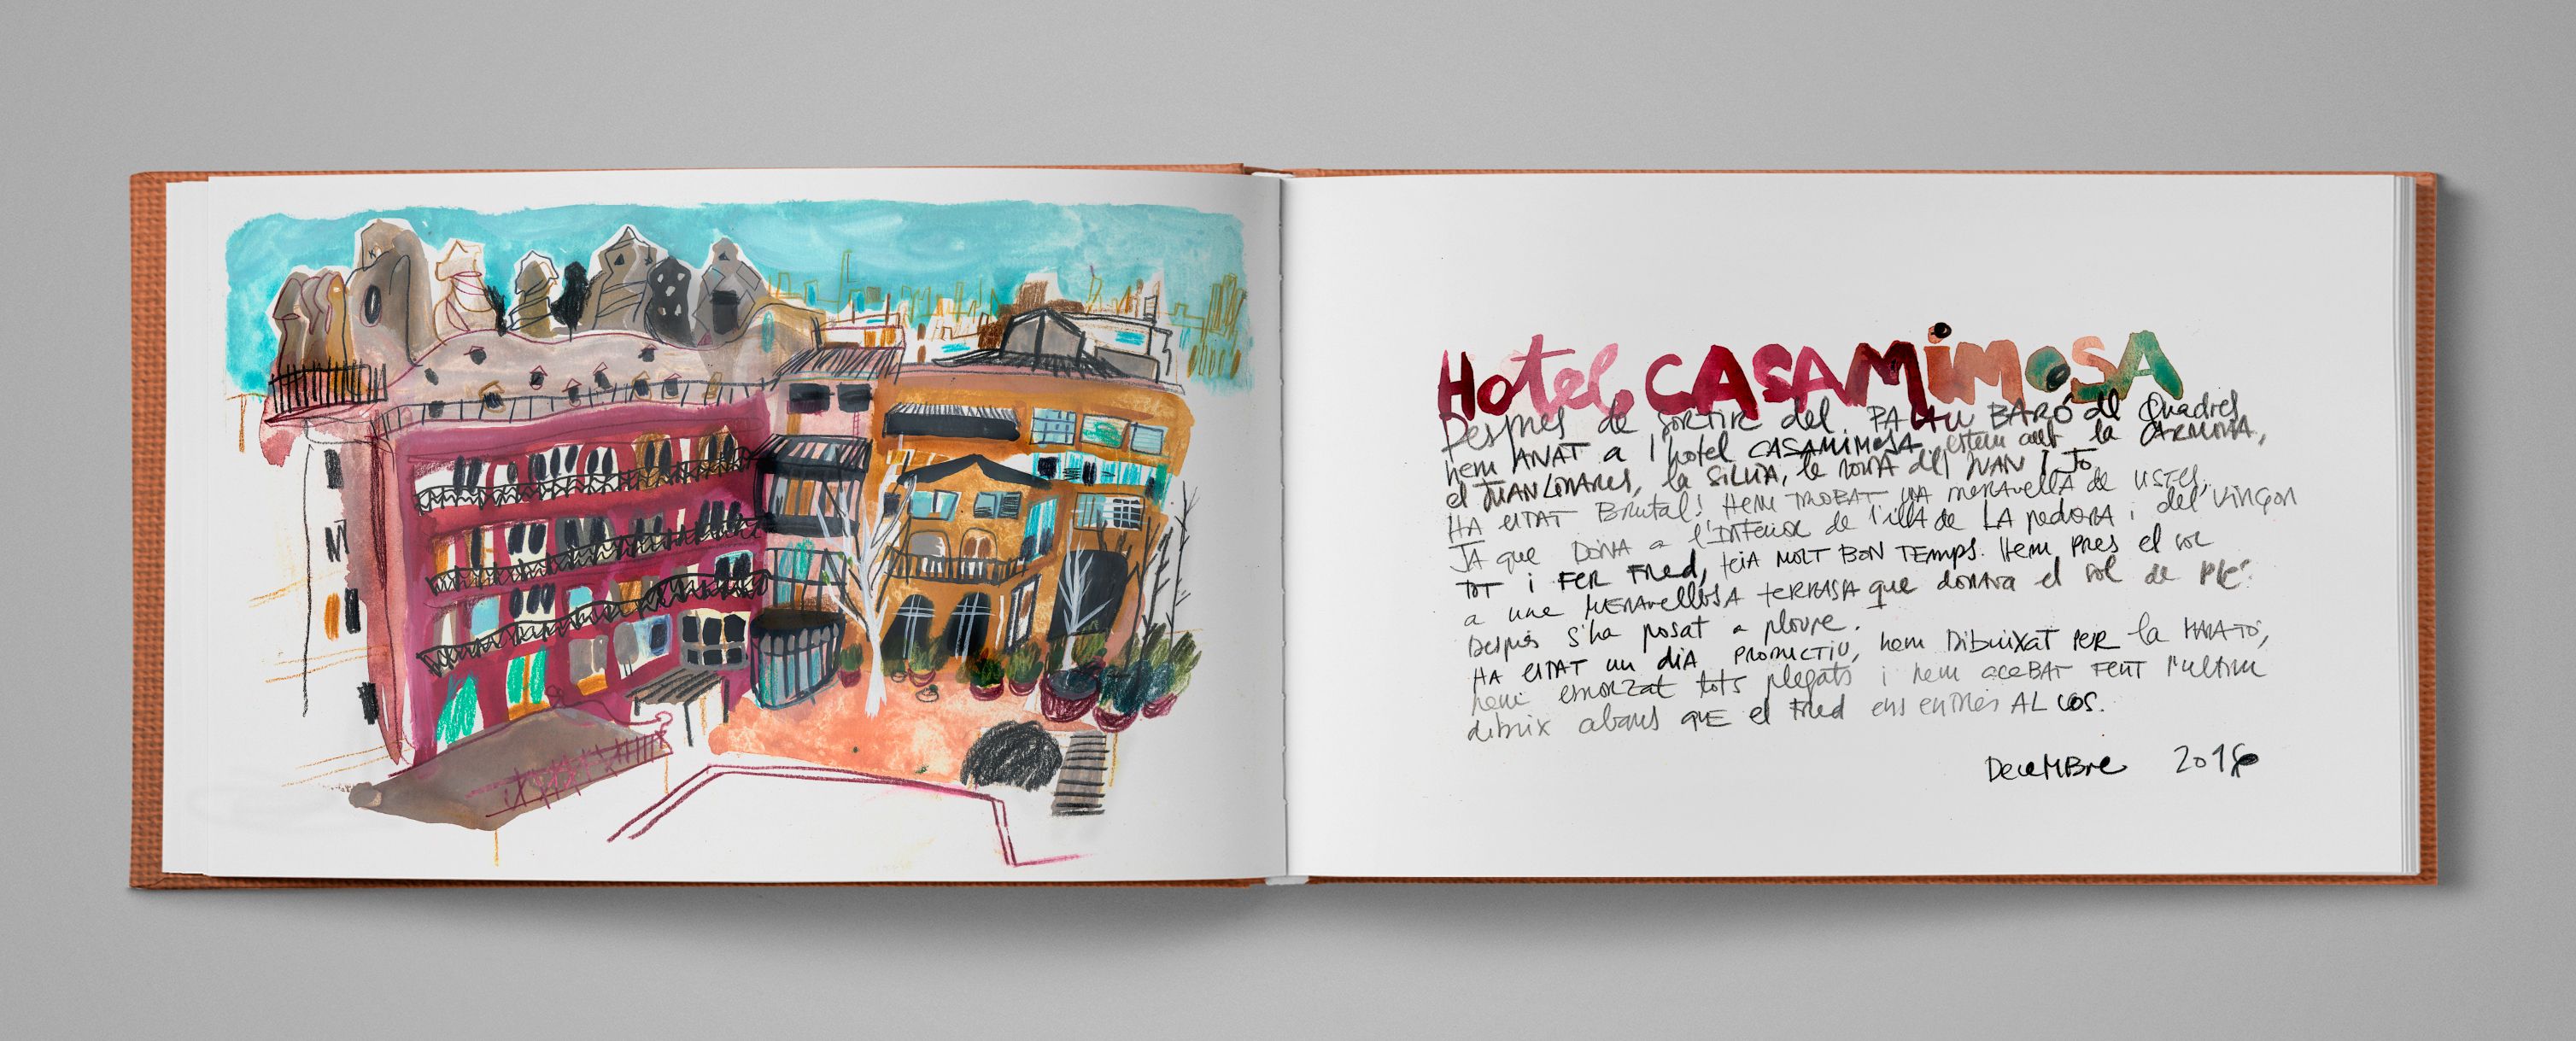 Hotel CASAMiMoSA
Despres de sortir del PALAU BARÓ del Quadres
hem ANAT a l'hotel CASAMIMOSA, estem amb la CARMINA,
el JUAN LINARES, la SILVIA, la novia del JUAN i Jo
HA ESTAT Brutal! Hem TROBAT UNA meravella de vistes,
JA que DONA a l'interior de l'illa de LA pedrera i del Vinçon
TOT i FER Fred, feia MOLT BON TEMPS. Hem pres el sol
a una MERAvellosA terrasa que donava el sol de ple.
Després s'ha posat a ploure.
HA ESTAT un diA PRODUCTIU, hem Dibuixat PER la MARATÓ,
hem esmorzat tots plegats i hem acabat FENT l'ultim
dibuix abans QUE el Fred ens entrés AL COS.
DeceMBre 2016